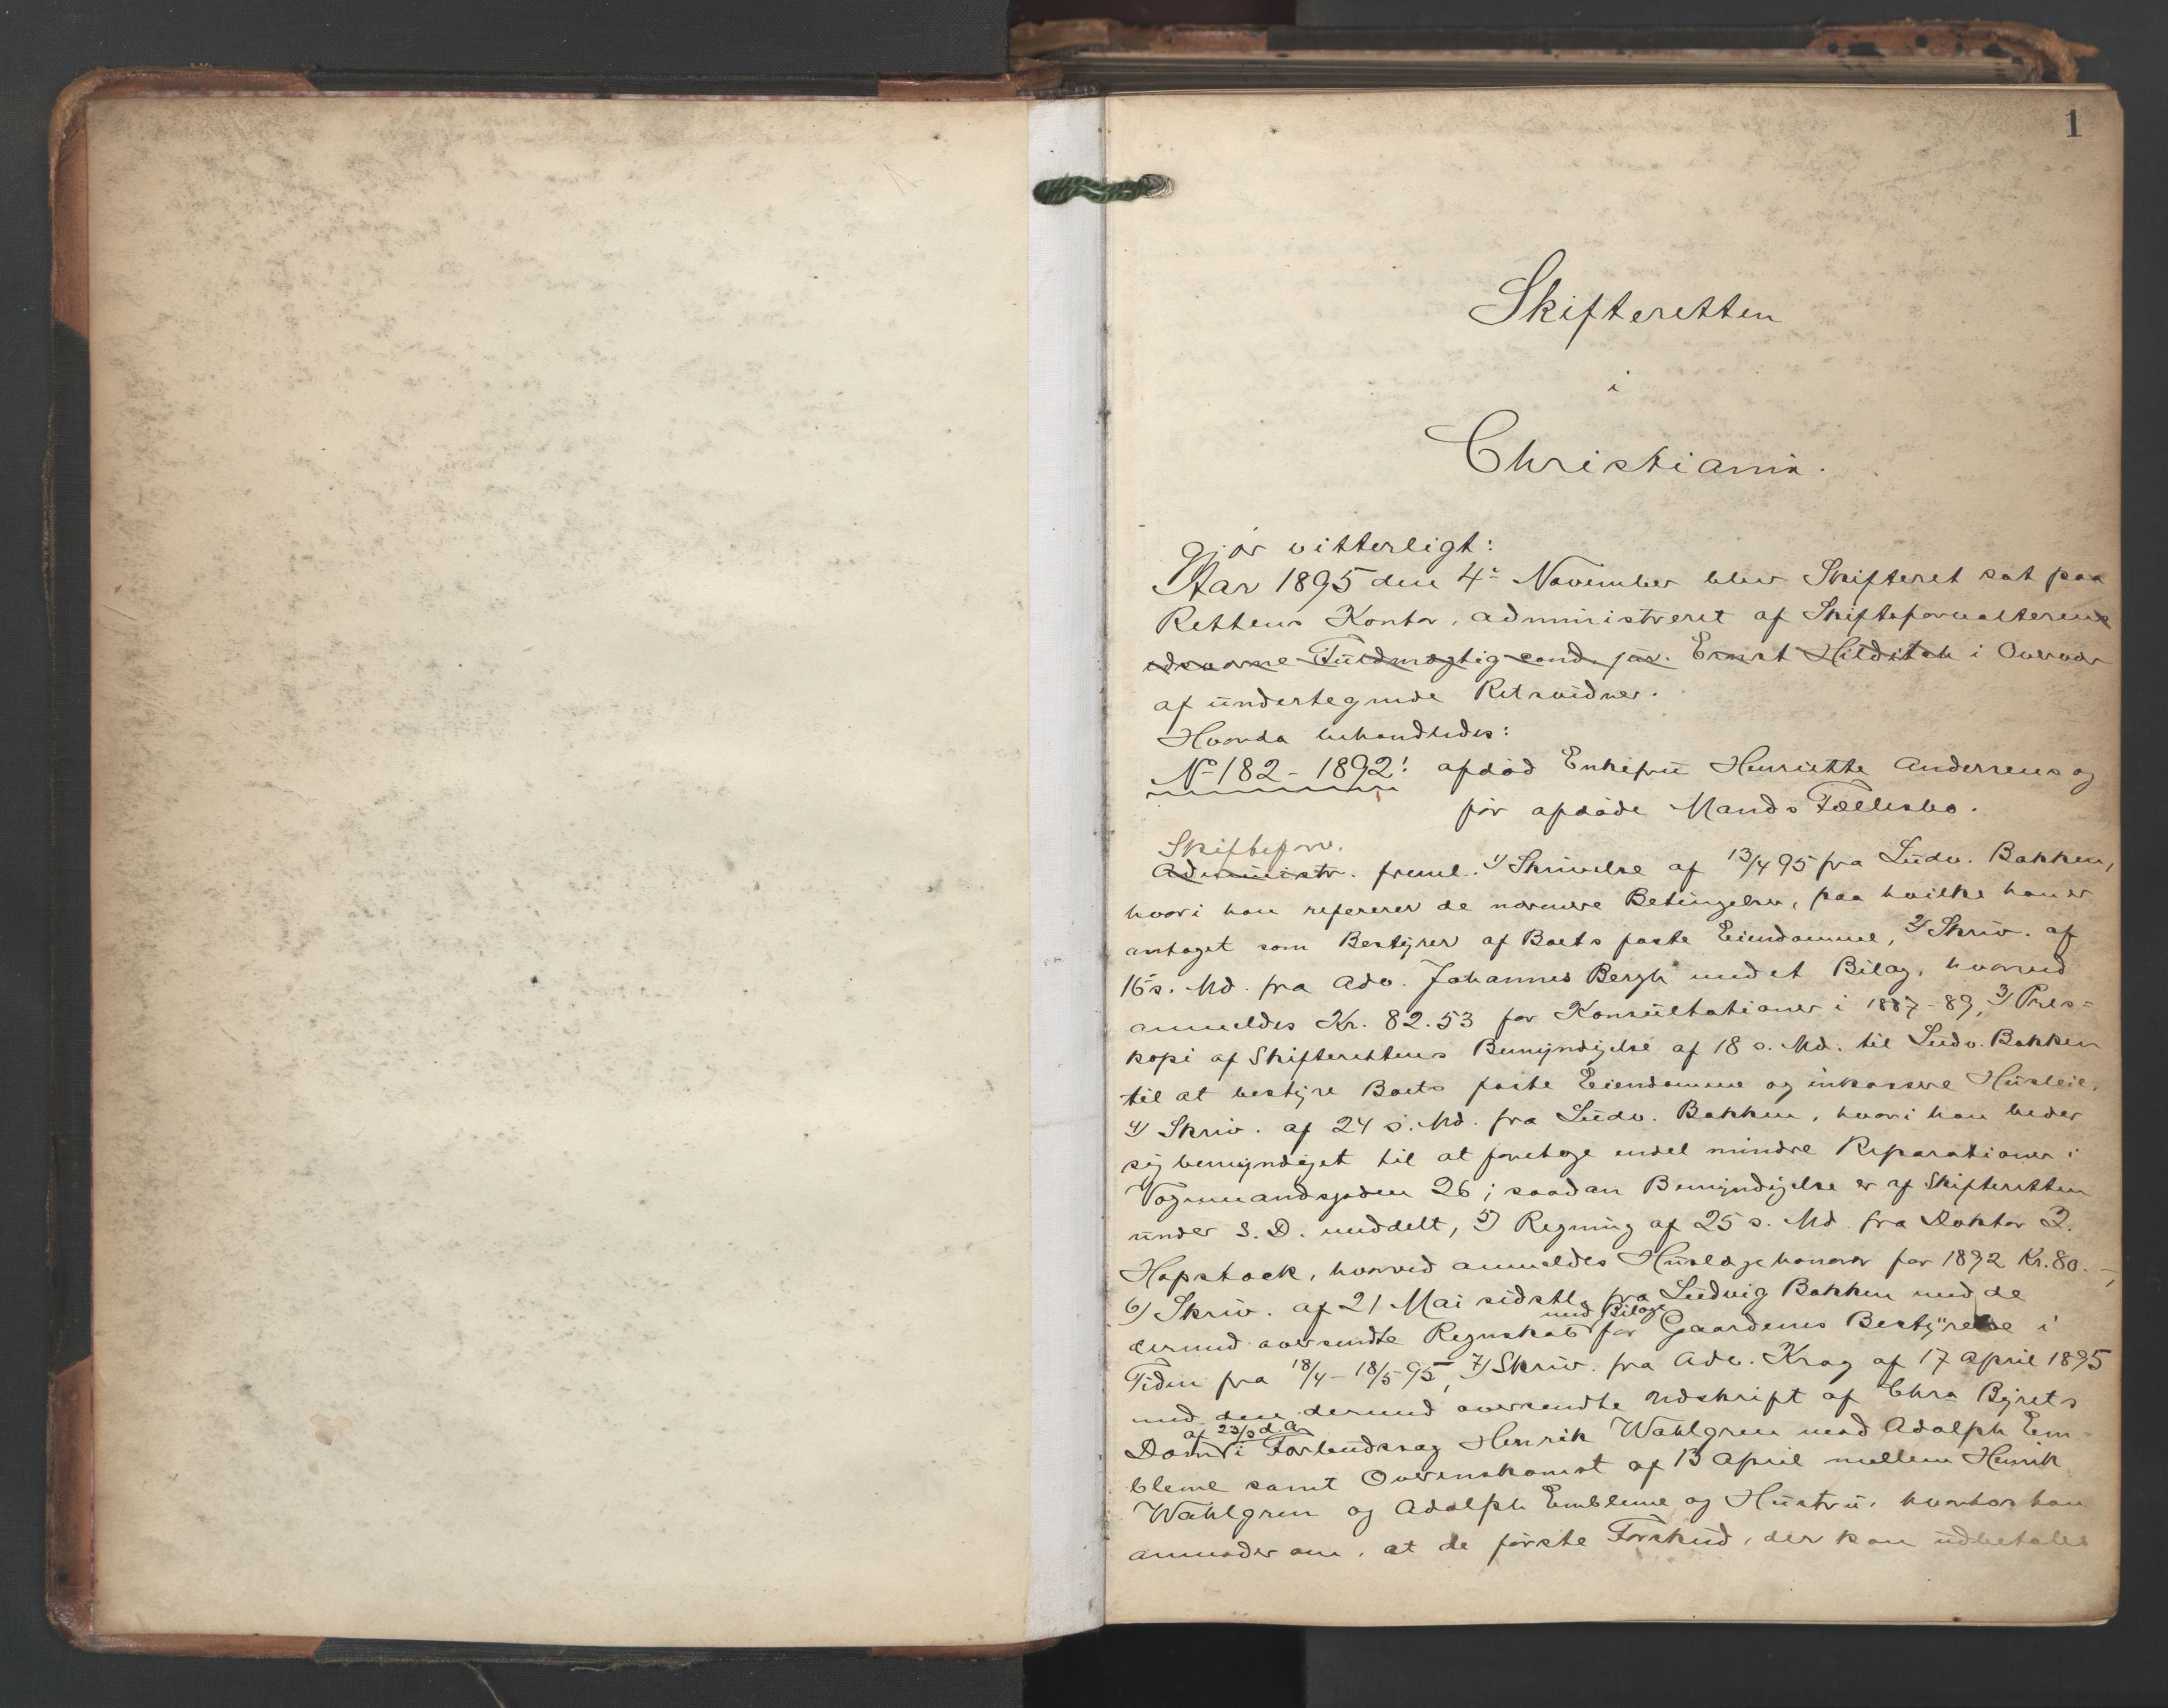 1
Skifteretten
i
Christiania.
gjør vitterligt:
Aar 1895 den 4de November blev Skifteret sat paa
Rettens Kontor, administreret af Skifteforvalterens
edsvorne Fuldmægtig cand. jur. Ernst Hilditch i Overvær
af undertegnede Retsvidner.
Hvorda behandledes:
No 182 - 1892: afdød Enkefru Henriette Andersens og
før afdøde Mands Fællesbo.
Skifteforv.
Administr. freml. 1) Skrivelse af 13/4 95 fra Ludv. Bakken,
hvori han refererer de nærmere Betingelser, paa hvilke han er
antaget som Bestyrer af Boets faste Eiendomme, 2) Skriv. af
16 s. Md. fra Adv. Johannes Bergh med et Bilag, hvorved
anmeldes Kr. 82.53 for Konsultationer i 1887-89, 3) Pres-
kopi af Skifterettens Bemyndigelse af 18 s. Md. til Ludv. Bakken
til at bestyre Boets faste Eiendomme og inkassere Husleie,
4) Skriv. af 24 s. Md. fra Ludv. Bakken, hvori han beder
sig bemyndiget til at foretage endel mindre Reparationer i
Vognmandsgaden 26; saadan Bemyndigelse er af Skifteretten
under s. D. meddelt, 5) Regning af 25 s. Md. fra Doktor
Hopstock, hvorved anmeldes Huslægehonorar for 1892 Kr. 80.-,
6) Skriv. af 21 Mai sidstl. fra Ludvig Bakken med de
med Bilage
dermed oversendte Regnskab for Gaardenes Bestyrelse i
Tiden fra 18/4 - 18/5 95, 7) Skriv. fra Adv. Krag af 17 April 1895
med den dermed oversendte Udskrift af Chra Byrets
af 23/3 d.A.
Dom i Forbudssag Henrik Wahlgren mod Adolph Em-
bleme samt Overenskomst af 13 April mellem Henrik
Wahlgren og Adolph Embleme og Hustru, hvorhos han
anmoder om, at de første Forskud, der kan udbetales